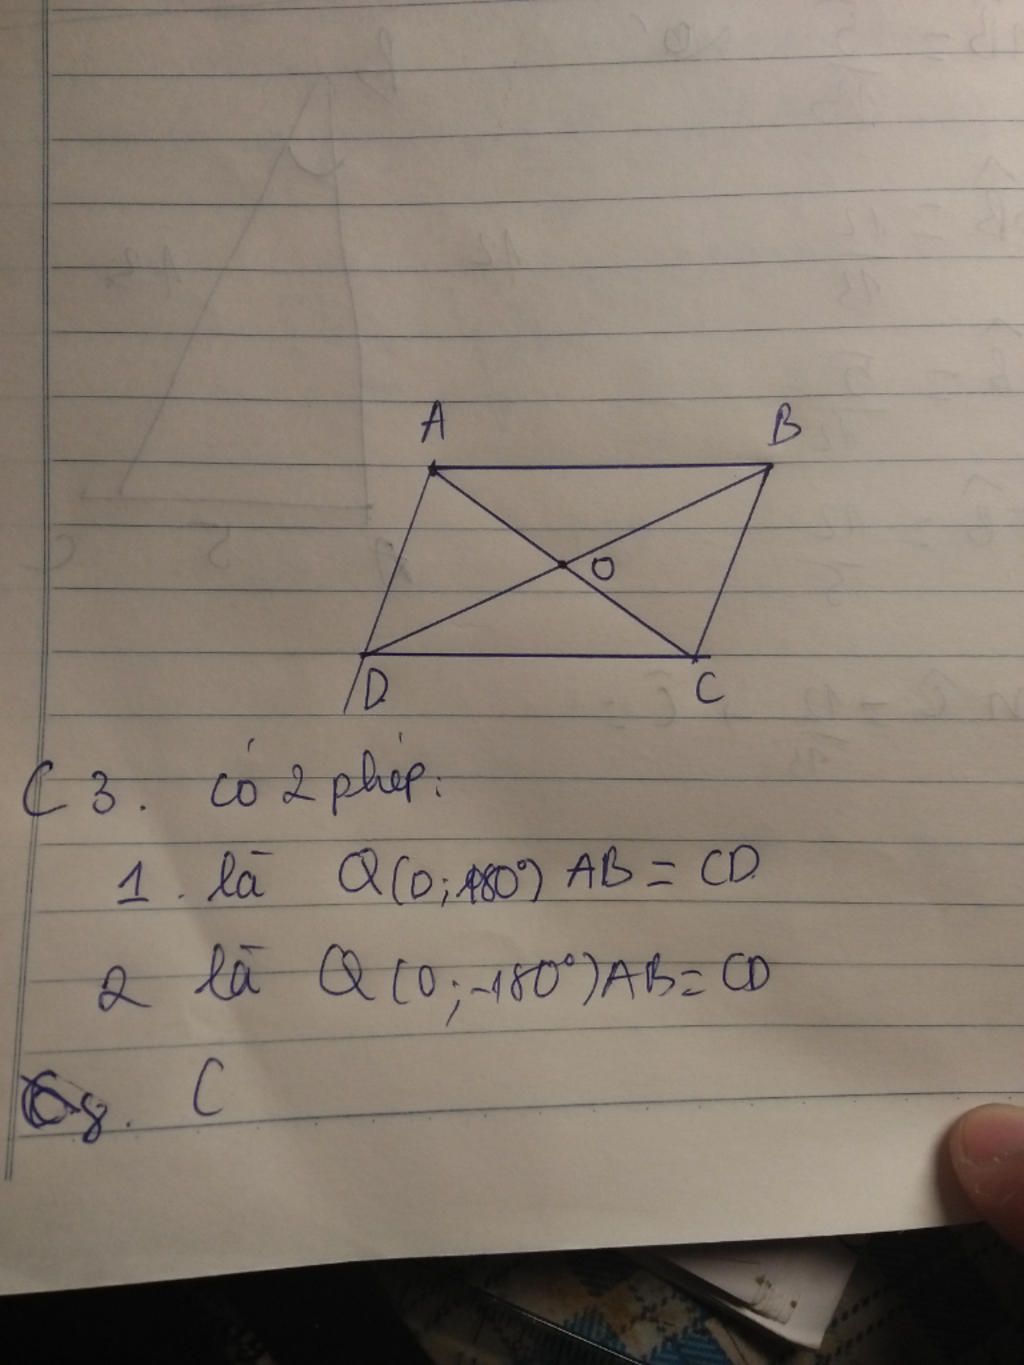 A B
O
D C
C 3. có 2 phép:
1. là Q(O; 180°) AB = CD
2 là Q(O; -180°) AB = CD
8. C